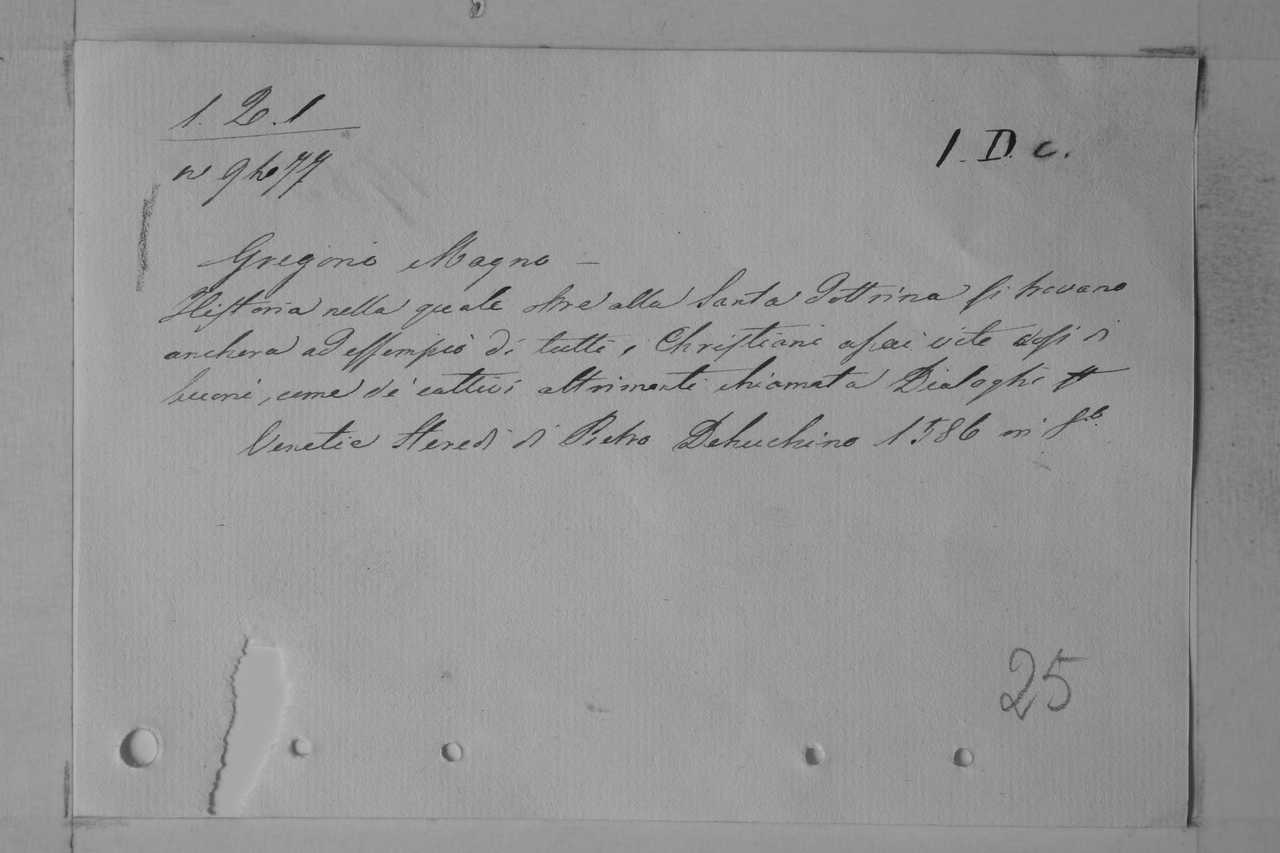 1. 2. 1
1. D. c.
Gregorio Magno –
Historia nella quale oltre alla Santa Dottrina si trovano
anchora ad essempio di tutti i Christiani assai vite cosi di
buoni, come de' cattivi altrimenti chiamata Dialoghi
Venetia Heredi di Pietro Dehuchino 1586 in 8º.
25